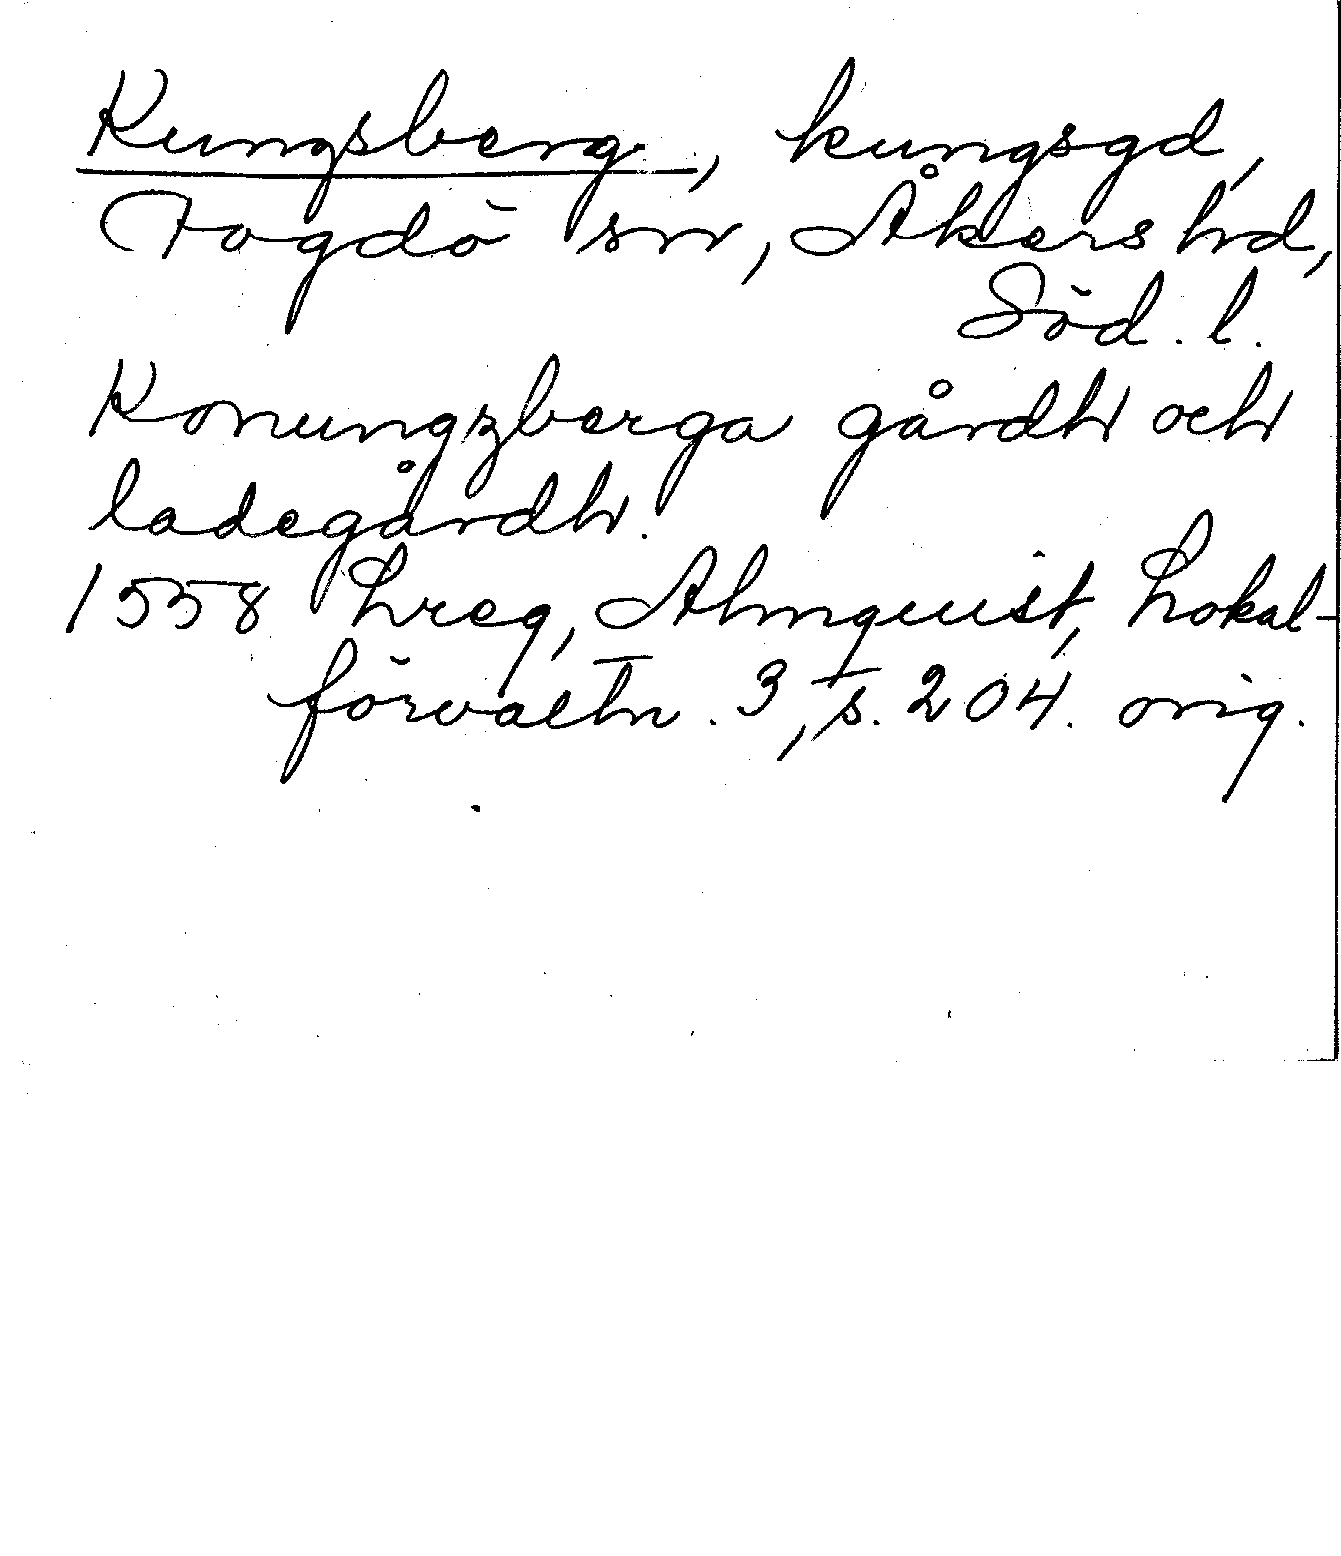 Kungsberg, kungsgd,
Fogdö sn, Åkers hd,
Söd. l.
Konungzberga gårdh och
ladegårdh.
1558 Lreg, Almquist, Lokal-
förvaltn. 3, s. 204. orig.